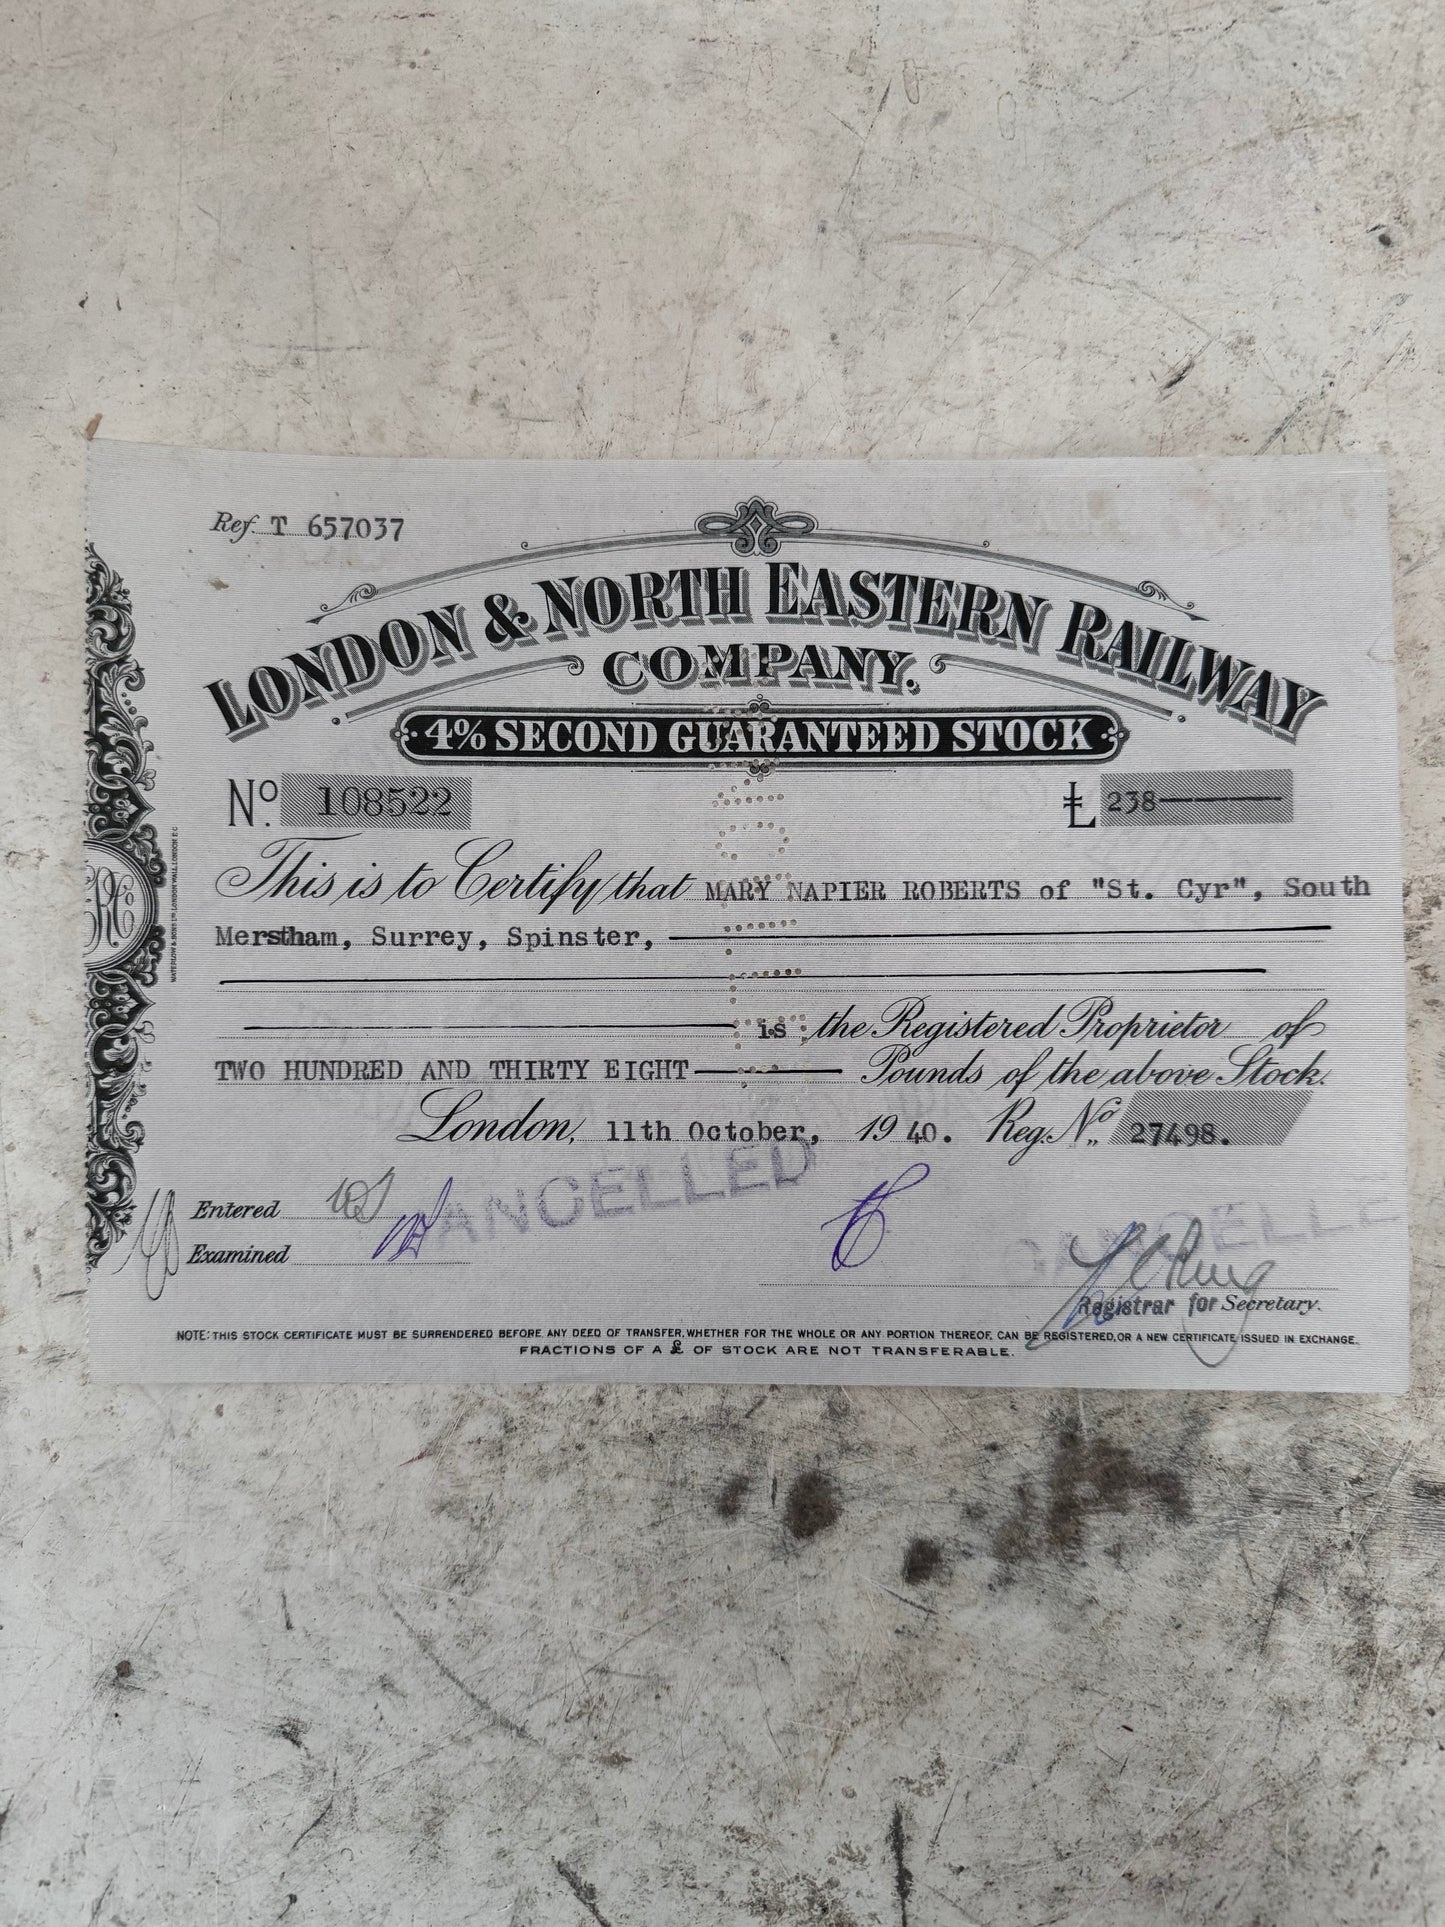 Ref. T 657037
LONDON & NORTH EASTERN RAILWAY
COMPANY.
4% SECOND GUARANTEED STOCK
No. 108522 £ 238
This is to Certify that MARY NAPIER ROBERTS of "St. Cyr", South
Merstham, Surrey, Spinster,
is the Registered Proprietor of
TWO HUNDRED AND THIRTY EIGHT Pounds of the above Stock.
London, 11th October, 1940. Reg. No. 27498.
CANCELLED
Entered
Examined
CANCELLE
Registrar for Secretary.
NOTE: THIS STOCK CERTIFICATE MUST BE SURRENDERED BEFORE ANY DEED OF TRANSFER, WHETHER FOR THE WHOLE OR ANY PORTION THEREOF, CAN BE REGISTERED, OR A NEW CERTIFICATE ISSUED IN EXCHANGE.
FRACTIONS OF A £ OF STOCK ARE NOT TRANSFERABLE.
WATERLOW & SONS LTD LONDON WALL, LONDON E.C.